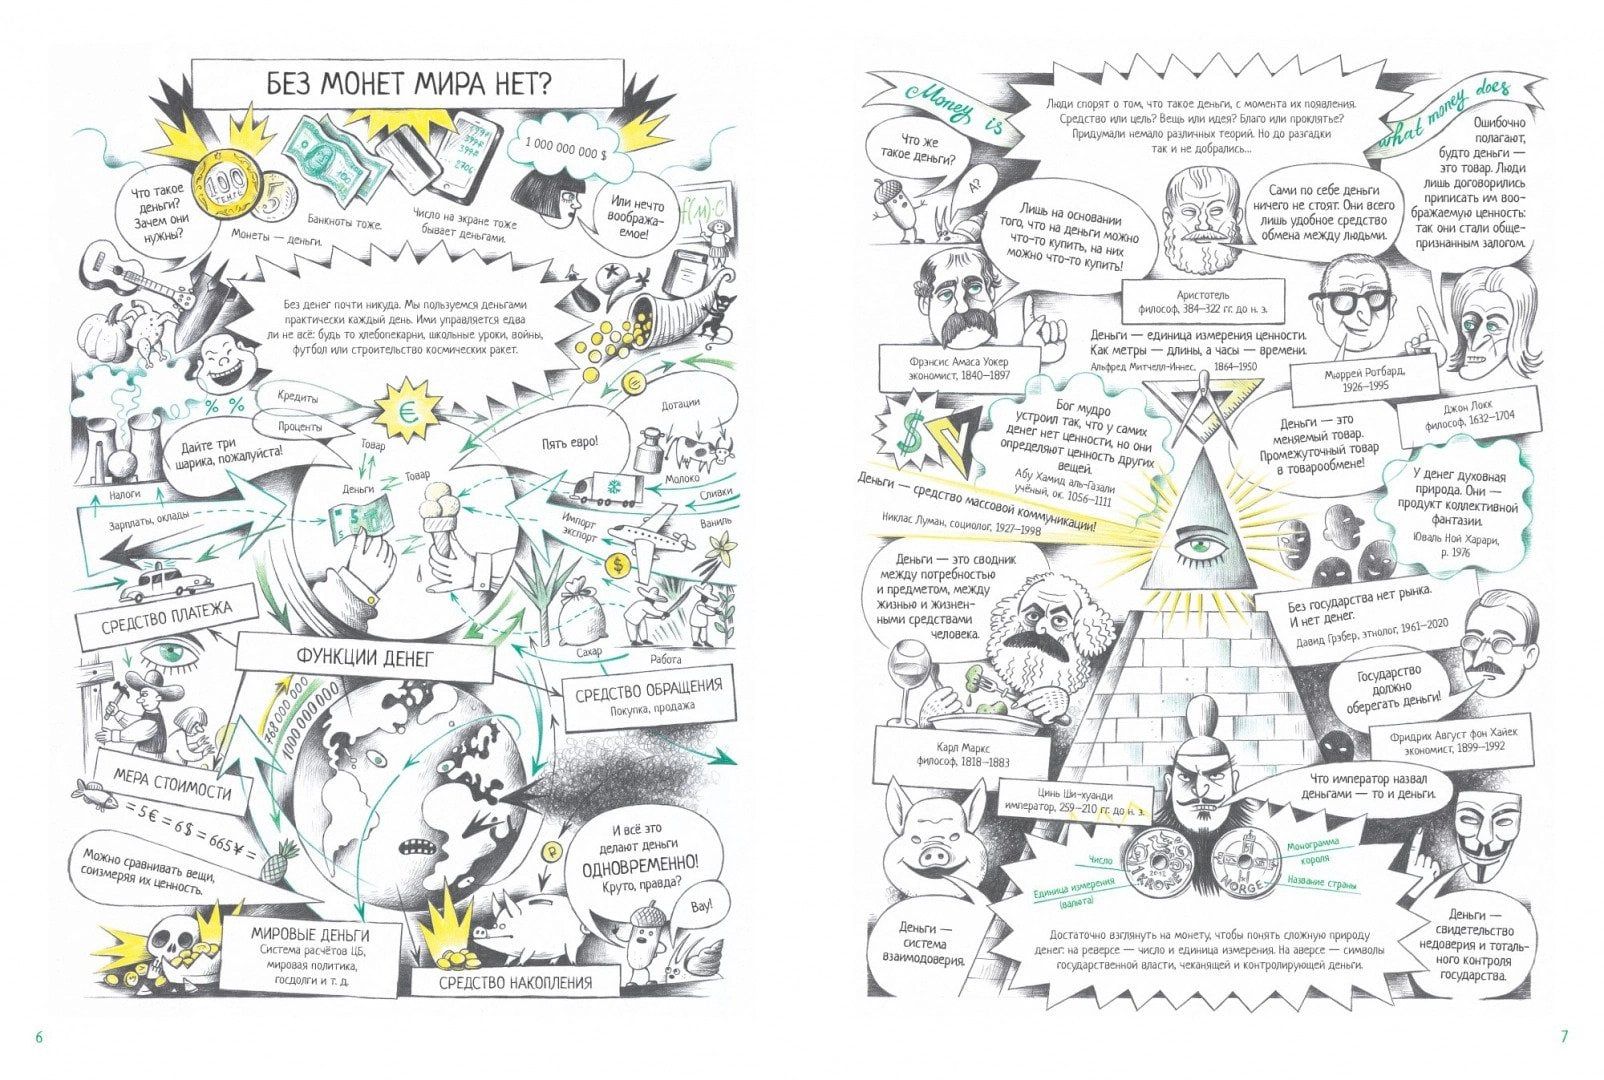 БЕЗ МОНЕТ МИРА НЕТ?
Что такое
деньги?
Зачем они
нужны?
100
ТЕНГЕ
5
Монеты — деньги.
100
Банкноты тоже.
Число на экране тоже
бывает деньгами.
1 000 000 000 $
Или нечто
вообража-
емое!
Без денег почти никуда. Мы пользуемся деньгами
практически каждый день. Ими управляется едва
ли не всё: будь то хлебопекарни, школьные уроки, войны,
футбол или строительство космических ракет.
% %
Кредиты
Проценты
€
€
Дотации
Дайте три
шарика, пожалуйста!
Пять евро!
Товар
Товар
Деньги
5
Налоги
Зарплаты, оклады
Молоко
Сливки
Импорт
экспорт
Ваниль
$
Сахар
Работа
СРЕДСТВО ПЛАТЕЖА
ФУНКЦИИ ДЕНЕГ
СРЕДСТВО ОБРАЩЕНИЯ
Покупка, продажа
768 000 000
1000 000 000
МЕРА СТОИМОСТИ
= 5 € = 6 $ = 665 ¥ =
Можно сравнивать вещи,
соизмеряя их ценность.
И всё это
делают деньги
ОДНОВРЕМЕННО!
Круто, правда?
Вау!
МИРОВЫЕ ДЕНЬГИ
Система расчётов ЦБ,
мировая политика,
госдолги и т. д.
СРЕДСТВО НАКОПЛЕНИЯ
6
Money is
what money does
Люди спорят о том, что такое деньги, с момента их появления.
Средство или цель? Вещь или идея? Благо или проклятье?
Придумали немало различных теорий. Но до разгадки
так и не добрались...
Что же
такое деньги?
А?
Лишь на основании
того, что на деньги можно
что-то купить, на них
можно что-то купить!
Фрэнсис Амаса Уокер
экономист, 1840–1897
Сами по себе деньги
ничего не стоят. Они всего
лишь удобное средство
обмена между людьми.
Аристотель
философ, 384–322 гг. до н. э.
Ошибочно
полагают,
будто деньги —
это товар. Люди
лишь договорились
приписать им воо-
бражаемую ценность:
так они стали обще-
признанным залогом.
Джон Локк
философ, 1632–1704
Деньги — единица измерения ценности.
Как метры — длины, а часы — времени.
Альфред Митчелл-Иннес, 1864–1950
Мюррей Ротбард,
1926–1995
$
Бог мудро
устроил так, что у самих
денег нет ценности, но они
определяют ценность других
вещей.
Абу Хамид аль-Газали
учёный, ок. 1056–1111
Деньги — это
меняемый товар.
Промежуточный товар
в товарообмене!
Деньги — средство массовой коммуникации!
Никлас Луман, социолог, 1927–1998
У денег духовная
природа. Они —
продукт коллективной
фантазии.
Юваль Ной Харари,
р. 1976
Деньги — это сводник
между потребностью
и предметом, между
жизнью и жизнен-
ными средствами
человека.
Карл Маркс
философ, 1818–1883
Без государства нет рынка.
И нет денег.
Давид Грэбер, этнолог, 1961–2020
Государство
должно
оберегать деньги!
Фридрих Август фон Хайек
экономист, 1899–1992
Цинь Ши-хуанди
император, 259–210 гг. до н. э.
Что император назвал
деньгами — то и деньги.
Число
Единица измерения
(валюта)
1 KRONE
2012
NORGE
Монограмма
короля
Название страны
Достаточно взглянуть на монету, чтобы понять сложную природу
денег: на реверсе — число и единица измерения. На аверсе — символы
государственной власти, чеканящей и контролирующей деньги.
Деньги —
система
взаимодоверия.
Деньги —
свидетельство
недоверия и тоталь-
ного контроля
государства.
7